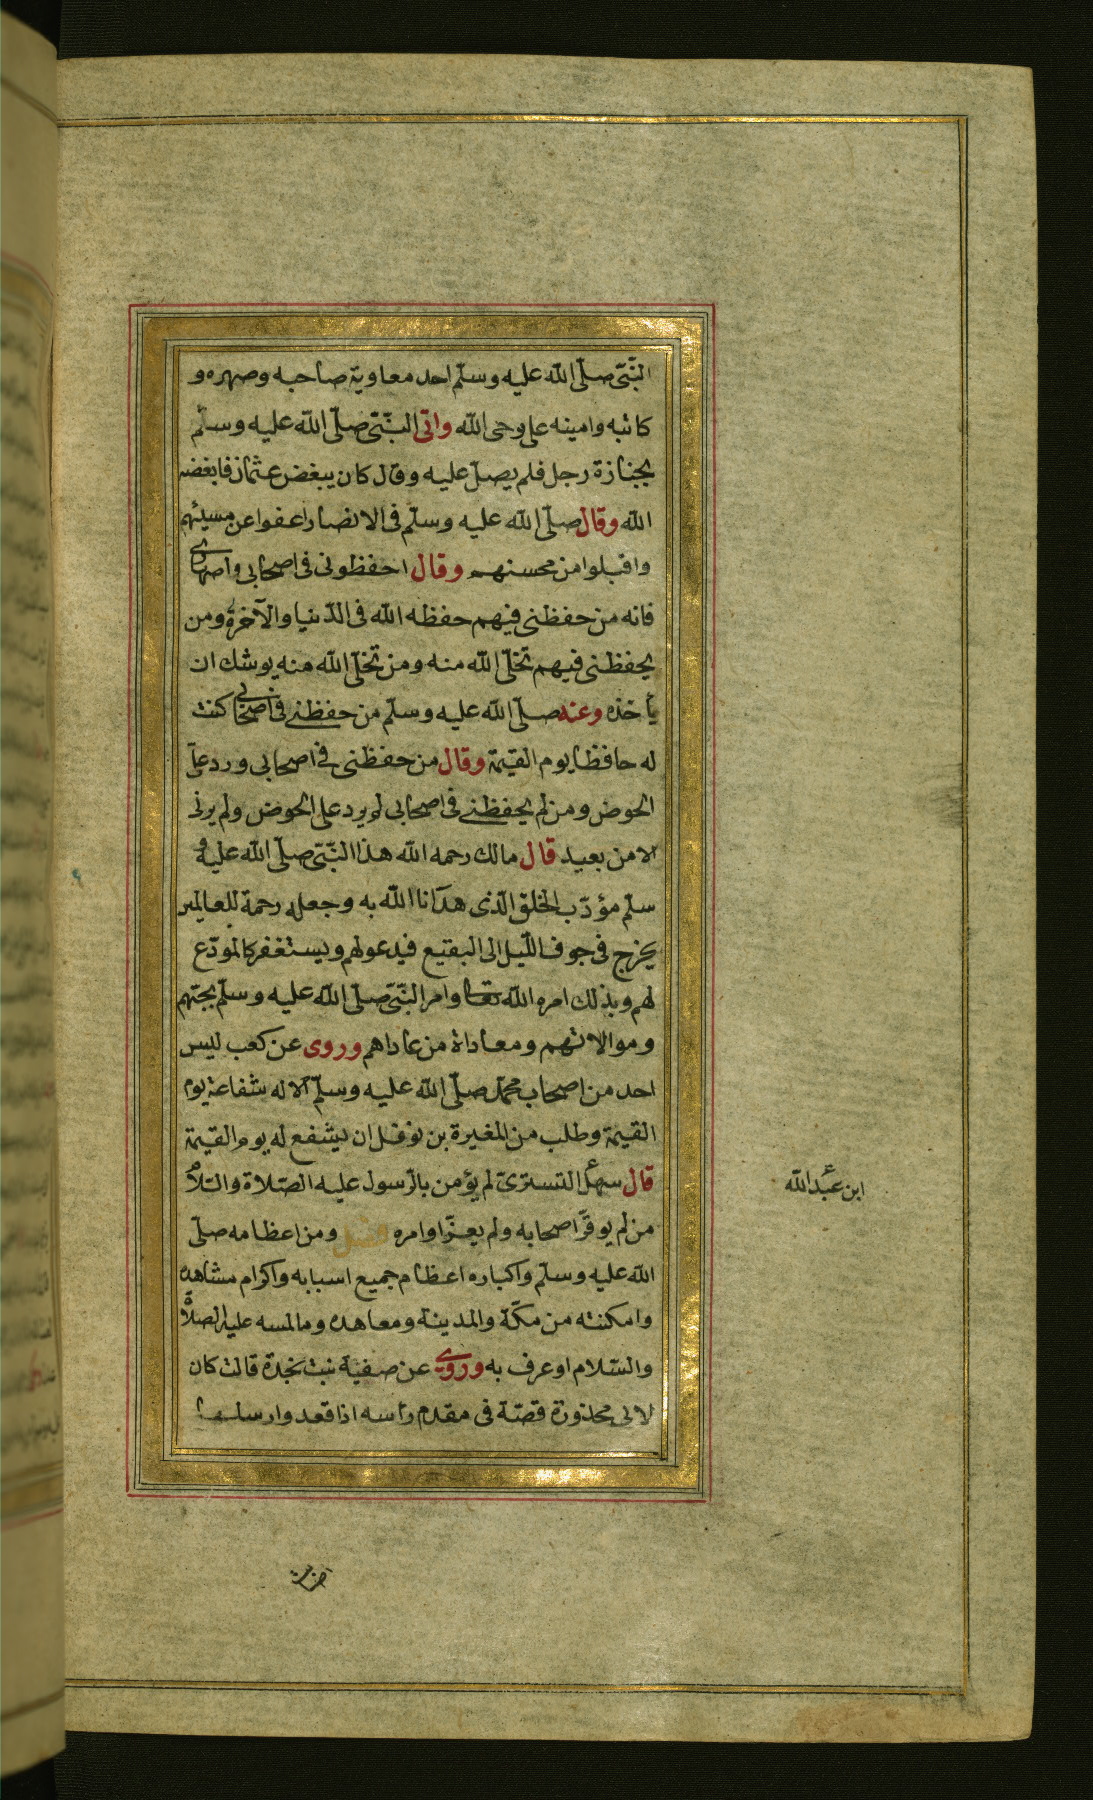 النّبّى صلّى اللّه عليه وسلّم احد معاوية صاحبه وصهره و
كاتبه وامينه على وحى اللّه واتى النّبّى صلّى اللّه عليه وسلّم
بجنازة رجل فلم يصل عليه وقال كان يبغض عثمان فابغضه
اللّه وقال صلّى اللّه عليه وسلّم فى الانصار اعفوا عن مسيئهم
واقبلوا من محسنهم وقال احفظونى فى اصحابى واصهارى
فانه من حفظنى فيهم حفظه اللّه فى الدّنيا والآخرة ومن
يحفظنى فيهم تخلّى اللّه منه ومن تخلّى اللّه منه يوشك ان
يأخذه وعنه صلّى اللّه عليه وسلّم من حفظنى فى اصحابى كنت
له حافظا يوم القيمة وقال من حفظنى فى اصحابى ورد علىّ
الحوض ومن لم يحفظنى فى اصحابى لم يرد على الحوض ولم يرنى
الا من بعيد قال مالك رحمه اللّه هذا النّبّى صلّى اللّه عليه و
سلّم مؤدّب الخلق الّذى هدانا اللّه به وجعله رحمة للعالمين
يخرج فى جوف اللّيل الى البقيع فيدعو لهم ويستغفر كالمودّع
لهم وبذلك امره اللّه تعا وامر النّبّى صلّى اللّه عليه وسلّم بحبّهم
وموالاتهم ومعاداة من عاداهم وروى عن كعب ليس
احد من اصحاب محمّد صلّى اللّه عليه وسلّم الا له شفاعة يوم
القيمة وطلب من المغيرة بن نوفل ان يشفع له يوم القيمة
قال سهل التسترىّ لم يؤمن بالرّسول عليه الصّلاة والسّلام
من لم يوقّر اصحابه ولم يعزّ اوامره فصل ومن اعظامه صلّى
اللّه عليه وسلّم واكباره اعظام جميع اسبابه واكرام مشاهده
وامكنته من مكّة والمدينة ومعاهده وما لمسه عليه الصلاة
والسّلام او عرف به وروى عن صفيّة بنت نجدة قالت كان
لابى محذورة قصّة فى مقدم رأسه اذا قعد وارسلها
ابن عبد اللّه